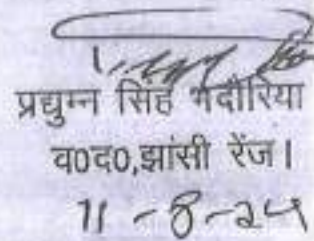 प्रद्युम्न सिंह भदौरिया
व0द0,झांसी रेंज।
11-8-24